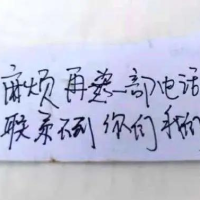 麻烦再装一部电话
联系不到你们 我们